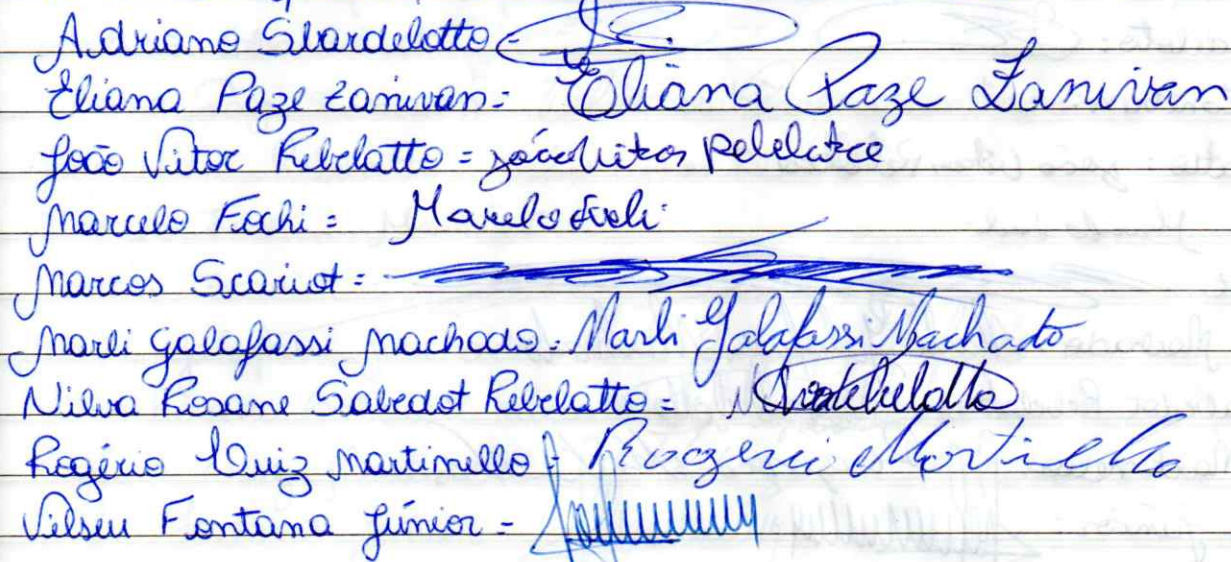 Adriano Sbardelotto -
Eliana Paze Zanivan - Eliana Paze Zanivan
João Vitor Rebelatto =
Marcelo Fochi = Marcelo Fochi
Marcos Scariot =
Marli Galafassi Machado - Marli Galafassi Machado
Nilva Rosane Sabedot Rebelatto =
Rogério Luiz Martinello - Rogerio Martinello
Vilseu Fontana Júnior -